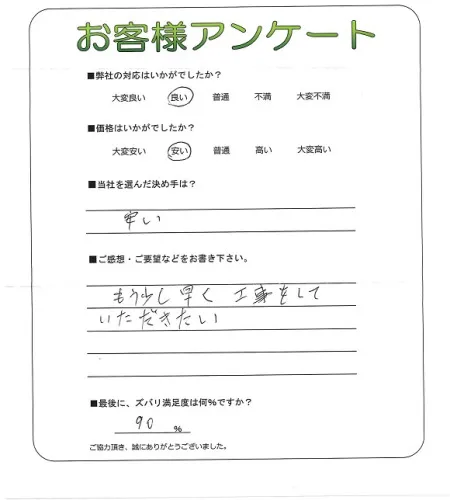 お客様アンケート
■弊社の対応はいかがでしたか？
大変良い 良い 普通 不満 大変不満
■価格はいかがでしたか？
大変安い 安い 普通 高い 大変高い
■当社を選んだ決め手は？
安い
■ご感想・ご要望などをお書き下さい。
もう少し早く工事をして
いただきたい
■最後に、ズバリ満足度は何％ですか？
90 ％
ご協力頂き、誠にありがとうございました。